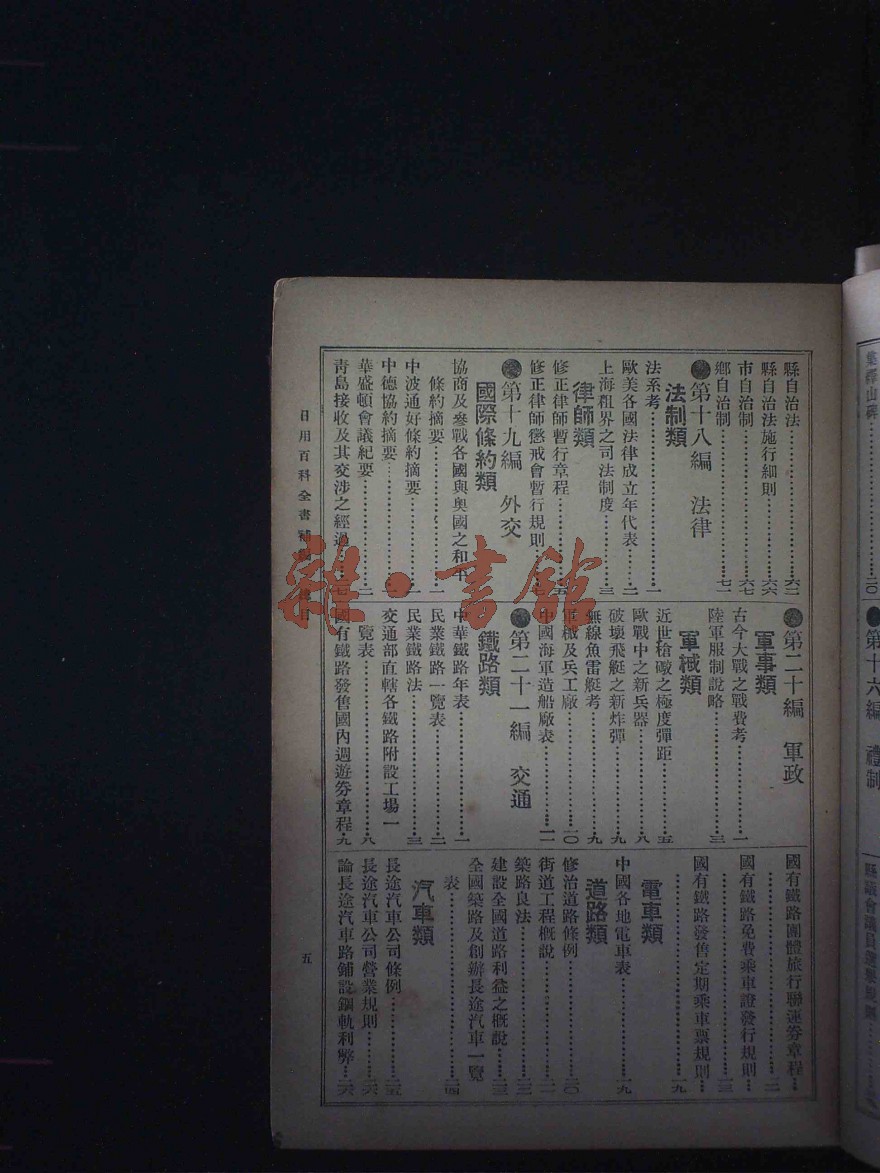 縣自治法……六二
縣自治法施行細則……六六
市自治制……六七
鄉自治制……七一
第十八編　法律
法制類
法系考……一
歐美各國法律成立年代表……二
上海租界之司法制度……三
律師類
修正律師暫行章程……五
修正律師懲戒會暫行規則……
第十九編　外交
國際條約類
協商及參戰各國與奧國之和平
條約摘要……一
中波通好條約摘要……一
中德協約摘要……
華盛頓會議紀要……二
青島接收及其交涉之經過……七
第二十編　軍政
軍事類
古今大戰之戰費考……一
陸軍服制說略……三
軍械類
近世槍礮之極度彈距……五
歐戰中之新兵器……八
破壞飛艇之新炸彈……九
無線魚雷艇考……九
軍械及兵工廠……一〇
中國海軍造船廠表……一一
第二十一編　交通
鐵路類
中華鐵路年表……一
民業鐵路一覽表……二
民業鐵路法……三
交通部直轄各鐵路附設工場一
覽表……八
國有鐵路發售國內週遊券章程…九
國有鐵路團體旅行聯運券章程…
……一二
國有鐵路免費乘車證發行規則…
……一三
國有鐵路發售定期乘車票規則…
……一九
電車類
中國各地電車表……一九
道路類
修治道路條例……二〇
街道工程概說……二一
築路良法……二二
建設全國道路利益之概說……二三
全國築路及創辦長途汽車一覽
表……二四
汽車類
長途汽車公司條例……二五
長途汽車公司營業規則……二六
論長途汽車路鋪設鋼軌利弊…二六
日用百科全書補編
五
雜·書館
集繹山碑
二〇一
第十六編　禮制